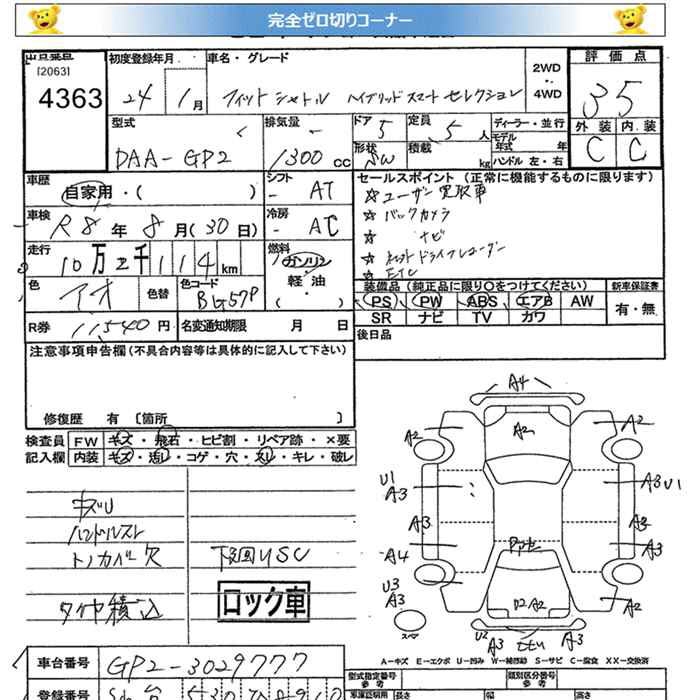 完全ゼロ切りコーナー
出品番号 初度登録年月 車名・グレード 2WD ・ 4WD 評価点
[2063]
4363 24 1月 フィットシャトル ハイブリッド スマートセレクション 35
型式 排気量 ドア 定員 ディーラー・並行 外装 内装
DAA-GP2 1300cc 5 5人 モデル年式 年 C C
形状 SW 積載 kg ハンドル 左・右
車歴 自家用・( ) シフト - AT セールスポイント (正常に機能するものに限ります)
☆ユーザー買取車
車検 R8年 8月(30日) 冷房 - AC ☆バックカメラ
☆ ナビ
走行 10万2千114km 燃料 ガソリン 軽油 ( ) ☆ ドライブレコーダー
☆ETC
色 アオ 色替 色コード BG57P 装備品 (純正品に限り○をつけてください) 新車保証書
PS PW ABS エアB AW 有・無
SR ナビ TV カワ
R券 11540円 名変通知期限 月 日 後日品
注意事項申告欄 (不具合内容等は具体的に記入して下さい)
修復歴 有 [箇所 ]
検査員 FW キズ・飛石・ヒビ割・リペア跡・×要
記入欄 内装 キズ・汚レ・コゲ・穴・スリ・キレ・破レ
キズU
ハンドルスレ
トノカバー欠 下回りUSC
タイヤ積込 ロック車
A4
A2 A2 A2
U1 A3 A3 U1
A3 A3
A4 A3
U3 A3 A2
U2 A2
スペア U2 A3 A3
A-キズ E-エクボ U-凹み W-補修跡 S-サビ C-腐食 XX-交換済
車台番号 GP2-3029777 型式指定番号 参考 類別区分番号 参考
登録番号 車庫証明用 長さ 幅 高さ